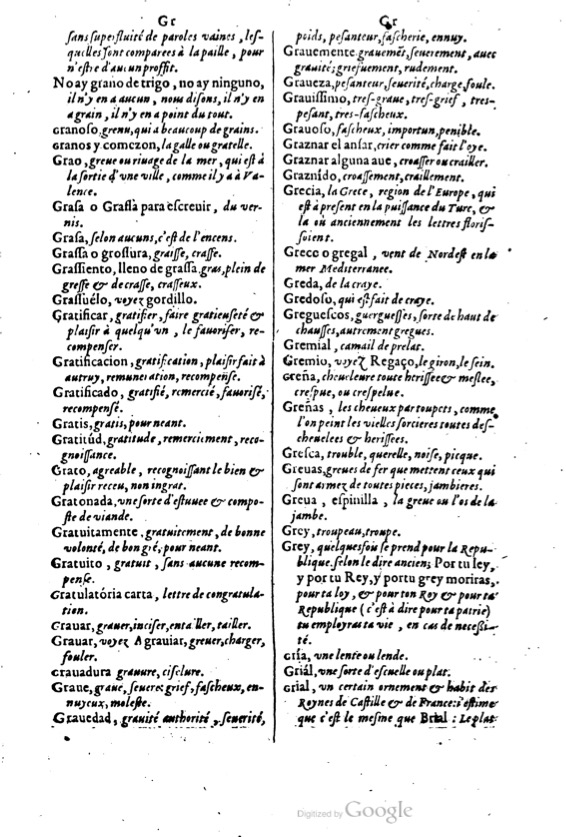 Gr
sans superfluité de paroles vaines, les-
quelles sont comparees à la paille, pour
n'estre d'aucun proffit.
No ay grano de trigo, no ay ninguno,
il n'y en a aucun, nous disons, il n'y en
a grain, il n'y en a point du tout.
Granoso, grenu, qui a beaucoup de grains.
Granos y comezon, la galle ou gratelle.
Grao, greue ou riuage de la mer, qui est à
la sortie d'vne ville, comme il y a à Va-
lence.
Grasa o Grassa para escreuir, du ver-
nis.
Grasa, selon aucuns, c'est de l'encens.
Grassa o grossura, graisse, crasse.
Grassiento, lleno de grassa, gras, plein de
gresse & de crasse, crasseux.
Grassuélo, voyez gordillo.
Gratificar, gratifier, faire gratieuseté &
plaisir à quelqu'vn, le fauoriser, re-
compenser.
Gratificacion, gratification, plaisir fait à
autruy, remuneration, recompense.
Gratificado, gratifié, remercié, fauorisé,
recompensé.
Gratis, gratis, pour neant.
Gratitúd, gratitude, remerciement, reco-
gnoissance.
Grato, agreable, recognoissant le bien &
plaisir receu, non ingrat.
Gratonada, vne sorte d'estuuee & compo-
ste de viande.
Gratuitamente, gratuitement, de bonne
volonté, de bon gré, pour neant.
Gratuito, gratuit, sans aucune recom-
pense.
Gratulatória carta, lettre de congratula-
tion.
Grauar, grauer, inciser, entailler, tailler.
Grauar, voyez Agrauiar, greuer, charger,
fouler.
Grauadura grauure, ciselure.
Graue, graue, seuere, grief, fascheux, en-
nuyeux, moleste.
Grauedad, grauité authorité, seuerité,
Gr
poids, pesanteur, fascherie, ennuy.
Grauemente grauemẽt, seuerement, auec
grauité; griefuement, rudement.
Graueza, pesanteur, seuerité, charge, foule.
Grauissimo, tres-graue, tres-grief, tres-
pesant, tres-fascheux.
Grauoso, fascheux, importun, penible.
Graznar el ansar, crier comme fait l'oye.
Graznar alguna aue, croasser ou crailler.
Graznído, croassement, craillement.
Grecia, la Grece, region de l'Europe, qui
est à present en la puissance du Turc, &
la où anciennement les lettres floris-
soient.
Greco o gregal, vent de Nordest en la
mer Mediterranee.
Greda, de la craye.
Gredoso, qui est fait de craye.
Greguescos, guerguesses, sorte de haut de
chausses, autrement gregues.
Gremial, camail de prelat.
Gremio, voyez Regaço, le giron, le sein.
Greña, cheueleure toute herissee & meslee,
crespue, ou crespelue.
Greñas, les cheueux par toupets, comme
l'on peint les vielles sorcieres toutes des-
cheuelees & herissees.
Gresca, trouble, querelle, noise, picque.
Greuas, greues de fer que mettent ceux qui
sont armez de toutes pieces, jambieres.
Greua, espinilla, la greue ou l'os de la
jambe.
Grey, troupeau, troupe.
Grey, quelquesfois se prend pour la Repu-
blique selon le dire ancien; Por tu ley,
y por tu Rey, y por tu grey moriras,
pour ta loy, & pour ton Roy & pour ta
Republique (c'est à dire pour ta patrie)
tu employras ta vie, en cas de necessi-
té.
Gría, vne lente ou lende.
Griál, vne sorte d'escuelle ou plat.
Grial, vn certain ornement & habit des
Roynes de Castille & de France: i'estime
que c'est le mesme que Brial: Le plat
Digitized by Google